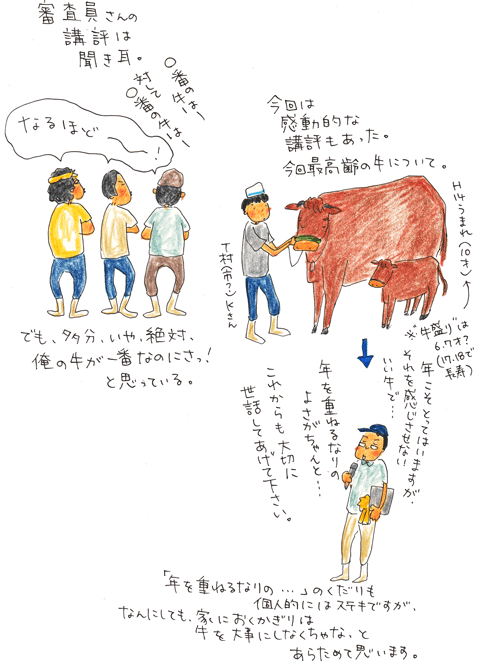 審査員さんの
講評は
聞き耳。
〇番の牛はー
対して
〇番の牛はー
なるほど〜〜!
でも、多分、いや、絶対、
俺の牛が一番なのにさっ!
と思っている。
今回は
感動的な
講評もあった。
今回最高齢の牛について。
T村(市?)Kさん
H14うまれ(10才)
※"牛盛り"は
6.7才?
(17.18で
長寿)
年こそとってはいますが、
それを感じさせない
いい牛で…
年を重ねるなりの
よさがちゃんと…
これからも大切に
世話してあげて下さい。
「年を重ねるなりの…」のくだりも
個人的にはステキですが、
なんにしても、家におくかぎりは
牛を大事にしなくちゃな、と
あらためて思います。